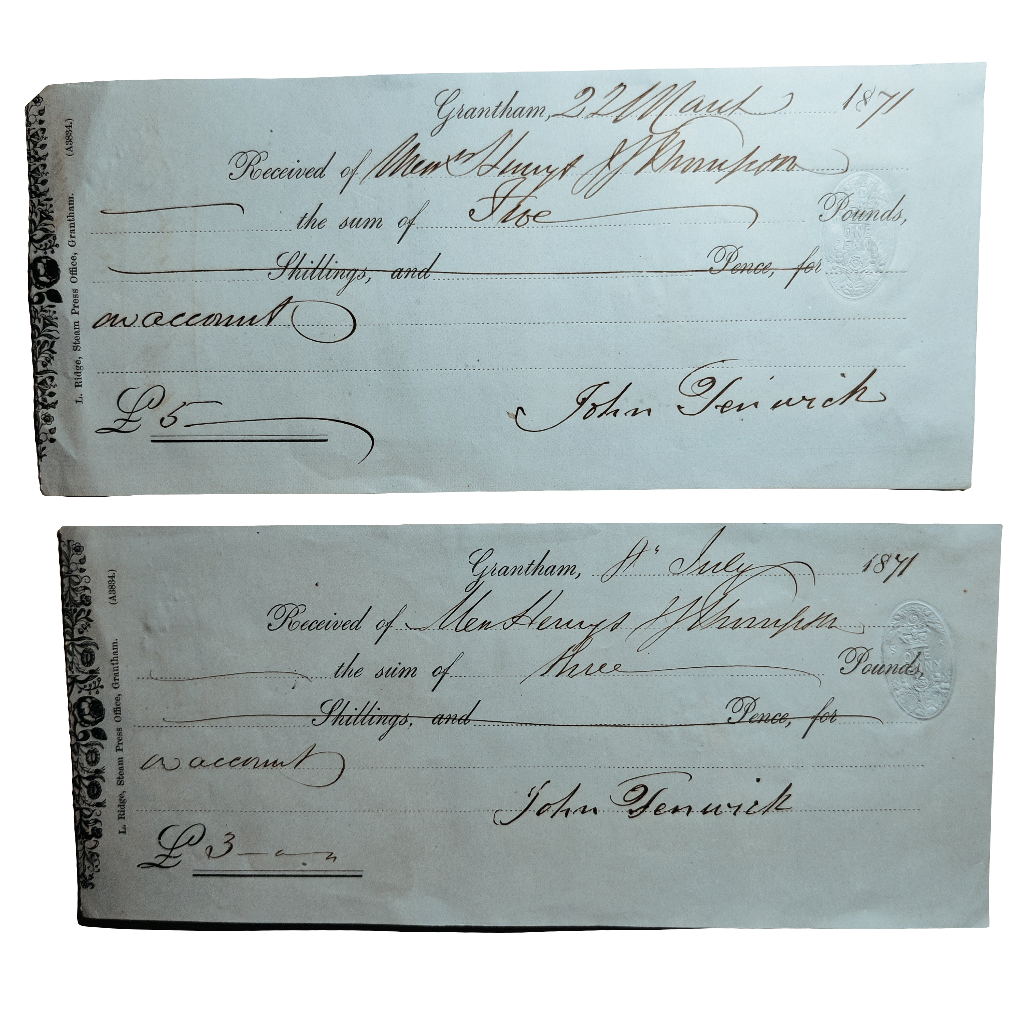 Grantham, 22 March 1871
Received of Messrs Henry & J Thompson
the sum of Five Pounds,
Shillings, and Pence, for
on account
£ 5
John Fenwick
L. Ridge, Steam Press Office, Grantham. (A3834.)
Grantham, July 1871
Received of Mess Henry & J Thompson
the sum of three Pounds,
Shillings, and Pence, for
on account
John Fenwick
£ 3 - " - "
L. Ridge, Steam Press Office, Grantham. (A3834.)